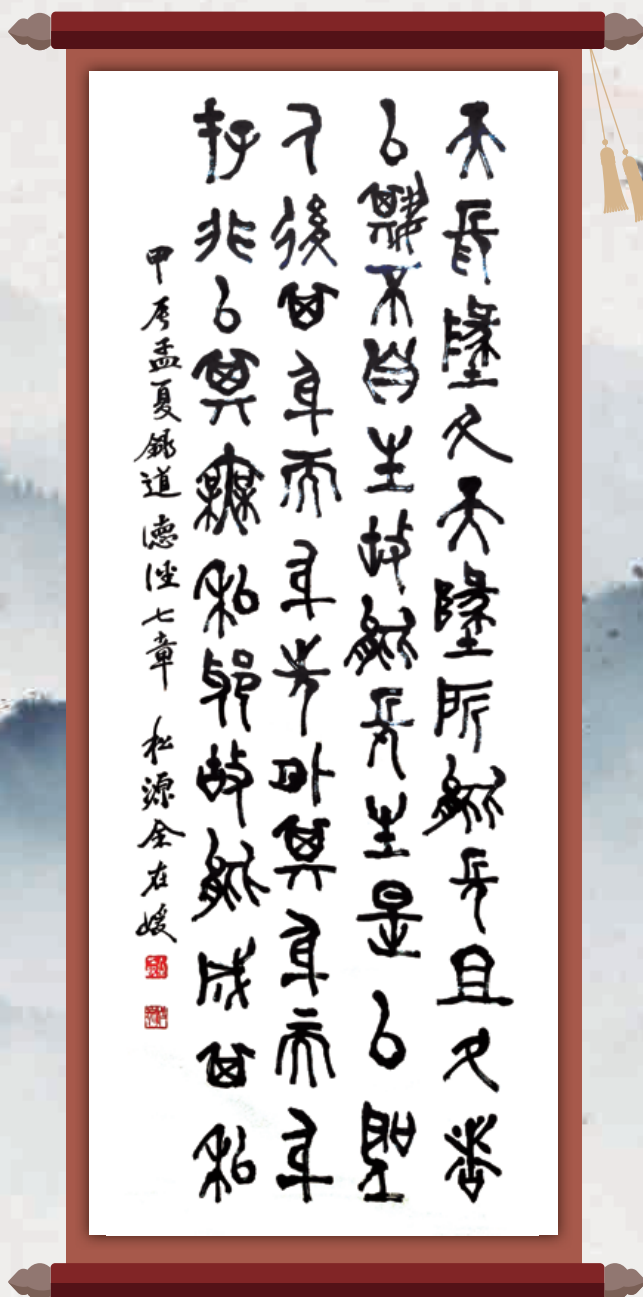 天長墬久天墬所能長且久者
以其不自生故能長生是以聖
人後其身而身先外其身而身
存非以其無私邪故能成其私
甲辰孟夏録道德經七章 松源全在媛